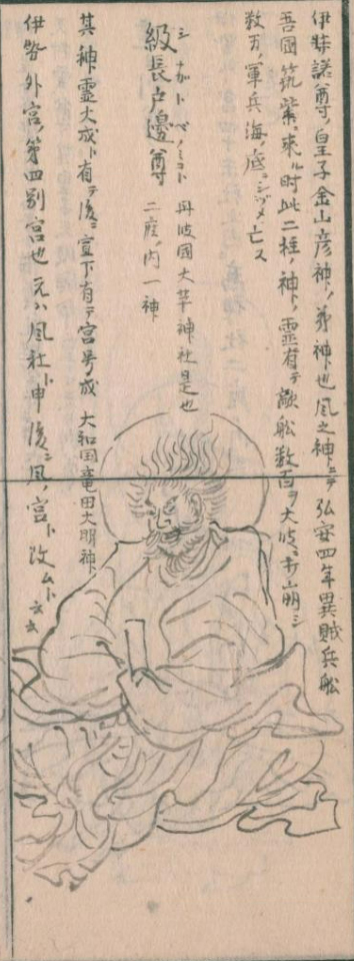 伊弉諾尊ノ皇子金山彦神ノ弟神也風之神ニテ弘安四年異賊兵船
吾國筑紫ニ來ル時此二柱ノ神ト霊有テ敵船数百ヲ大波ニ打崩シ
数万ノ軍兵海ノ底ニシヅメ亡ス
級長戸邊尊
シナガトベノミコト
丹波國大芋神社是也
二座ノ内一神
其神靈大成ト有テ後ニ宣下有テ宮号成 大和国竜田大明神ト
伊勢外宮ノ第四別宮也元ハ風社ト申後ニ風ノ宮ト改ムト云云